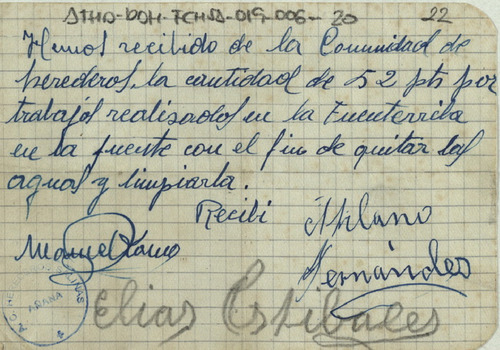 ATHA-DAH-FCHSA-019-006-20 22
Hemos recibido de la Comunidad de
herederos, la cantidad de 52 pts por
trabajos realizados en la Fuenterrila
en la fuente con el fin de quitar las
aguas y limpiarla.
Recibi
Manuel
Hernández
Elias Estibales
ARANA